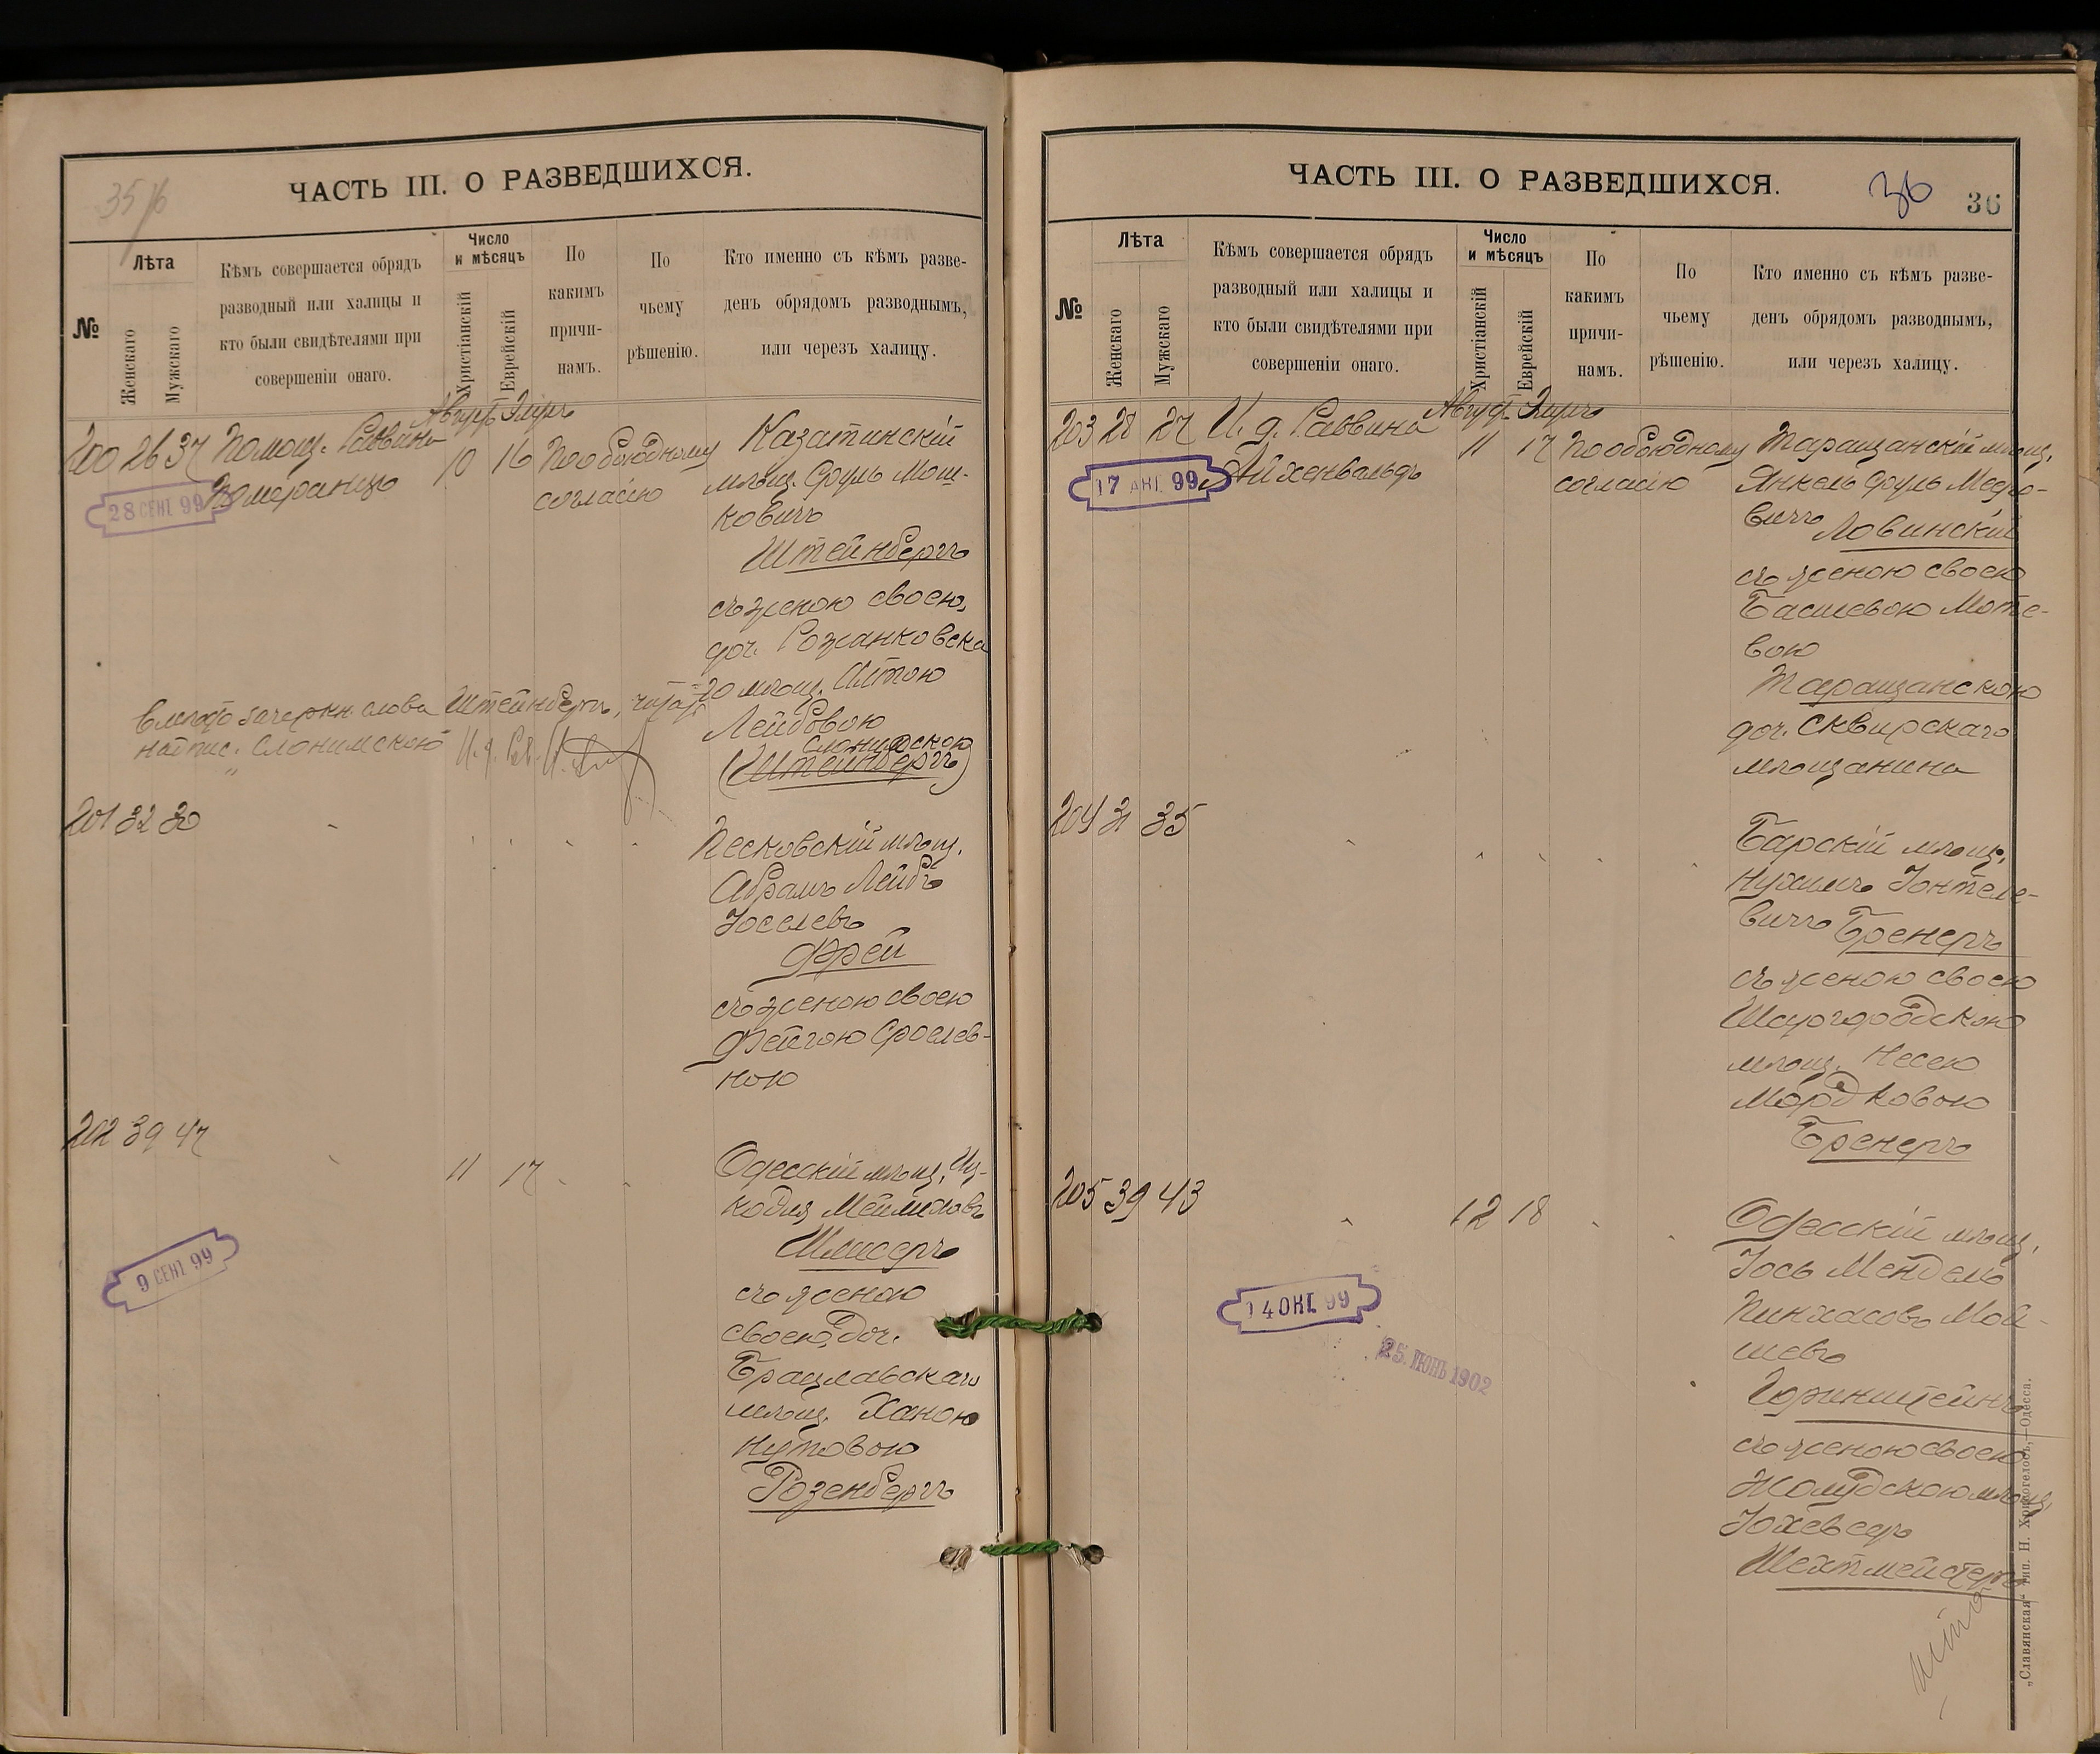 35 об
ЧАСТЬ III. О РАЗВЕДШИХСЯ.
№
Лѣта
Женскаго
Мужскаго
Кѣмъ совершается обрядъ
разводный или халицы и
кто были свидѣтелями при
совершеніи онаго.
Число
и мѣсяцъ
Христіанскій
Еврейскій
По
какимъ
причи-
намъ.
По
чьему
рѣшенію.
Кто именно съ кѣмъ разве-
денъ обрядомъ разводнымъ,
или черезъ халицу.
Августъ Элулъ
200 26 37 Помощ. Раввина
Померанцъ
10 16 По обоюдному
согласію
28 СЕНТ 99
Казатинскій
мѣщ. Сруль Мош-
ковичъ
Штейнбергъ
съ женою своею,
доч. Рожанковска
го мѣщ. Итою
Лейбовою
Слонимскою
(Штейнбергъ)
Вмѣсто зачеркн. слова Штейнбергъ, читать
надпис. „Слонимскою“ И. д. Рав.
201 32 30
Песковскій мѣщ.
Абрамъ Лейбъ
Іоселевъ
Фрей
съ женою своею
Фейгою Сролев-
ною
202 39 47
11 17
9 СЕНТ 99
Одесскій мѣщ. Иц-
Шлисеръ
съ женою
своею, доч.
Брацлавскаго
мѣщ. Ханою
Нутовою
Розенбергъ
ЧАСТЬ III. О РАЗВЕДШИХСЯ.
36
36
№
Лѣта
Женскаго
Мужскаго
Кѣмъ совершается обрядъ
разводный или халицы и
кто были свидѣтелями при
совершеніи онаго.
Число
и мѣсяцъ
Христіанскій
Еврейскій
По
какимъ
причи-
намъ.
По
чьему
рѣшенію.
Кто именно съ кѣмъ разве-
денъ обрядомъ разводнымъ,
или черезъ халицу.
Августъ Элулъ
203 28 27 И. д. Раввина
Айхенвальдъ
11 17 По обоюдному
согласію
17 АВГ. 99
Таращанскій мѣщ.
Янкель Сруль
вичъ Ловинскій
съ женою своею
Басшевою Мотe-
вою
Таращанскою
доч. Сквирскаго
мѣщанина
204 31 35
Барскій мѣщ.
Нухимъ Іонтеле-
вичъ Бренеръ
съ женою своею
Шаргородскою
мѣщ. Несею
Мордковою
Бренеръ
205 39 43
12 18
14 ОКТ 99
25. ІЮНЬ 1902
Одесскій мѣщ.
Іось Мендель
Пинхасовъ Мой-
шевъ
Горинштейнъ
съ женою своею
Жолудскою мѣщ.
Іохеведъ
Шехтмейстеръ
„Славянская“ тип. Н. Хрисогелосъ,—Одесса.